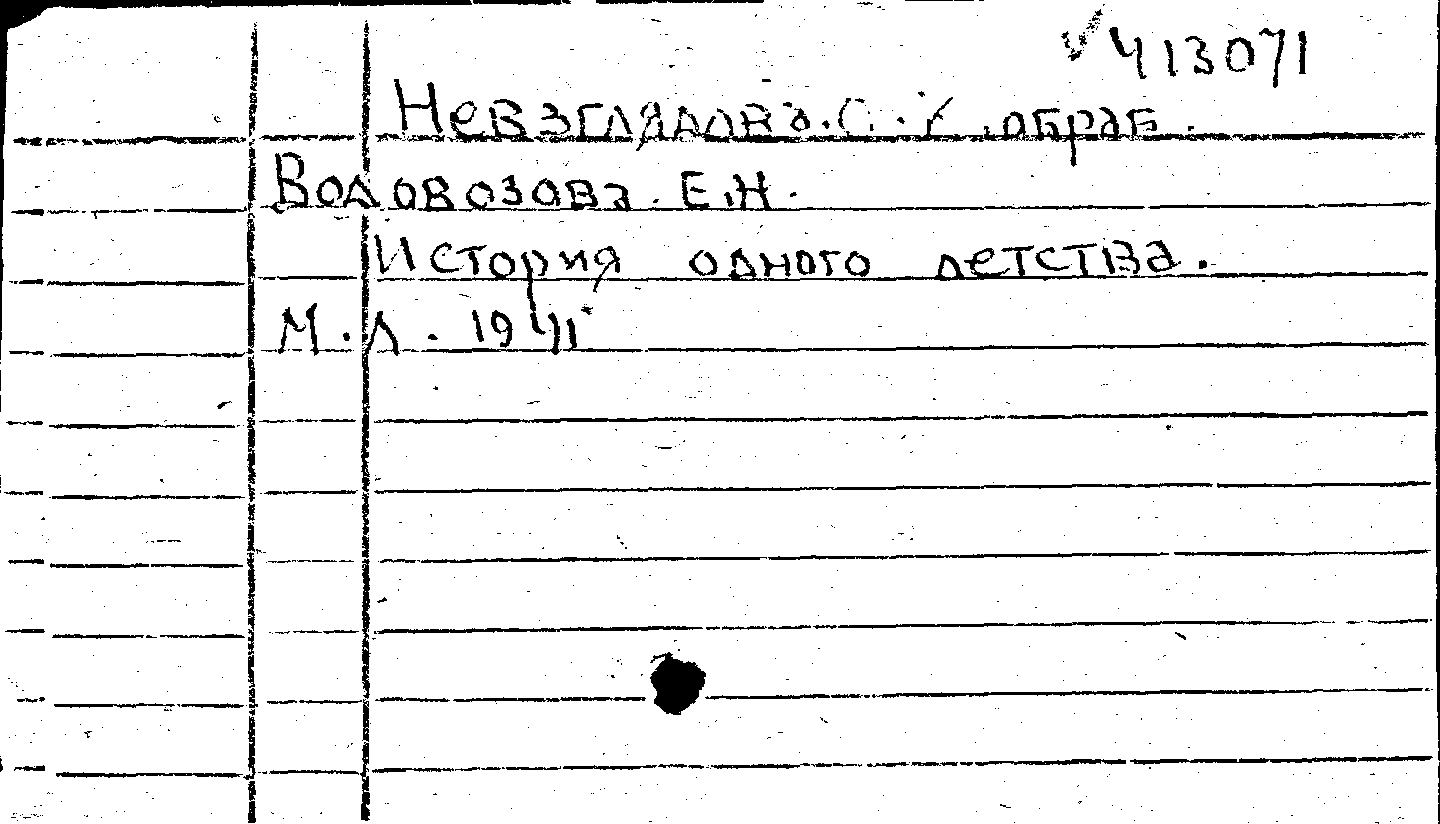 413071
Невзглядова. С. , обраб.
Водовозова. Е.Н.
История одного детства.
М.Л. 1941